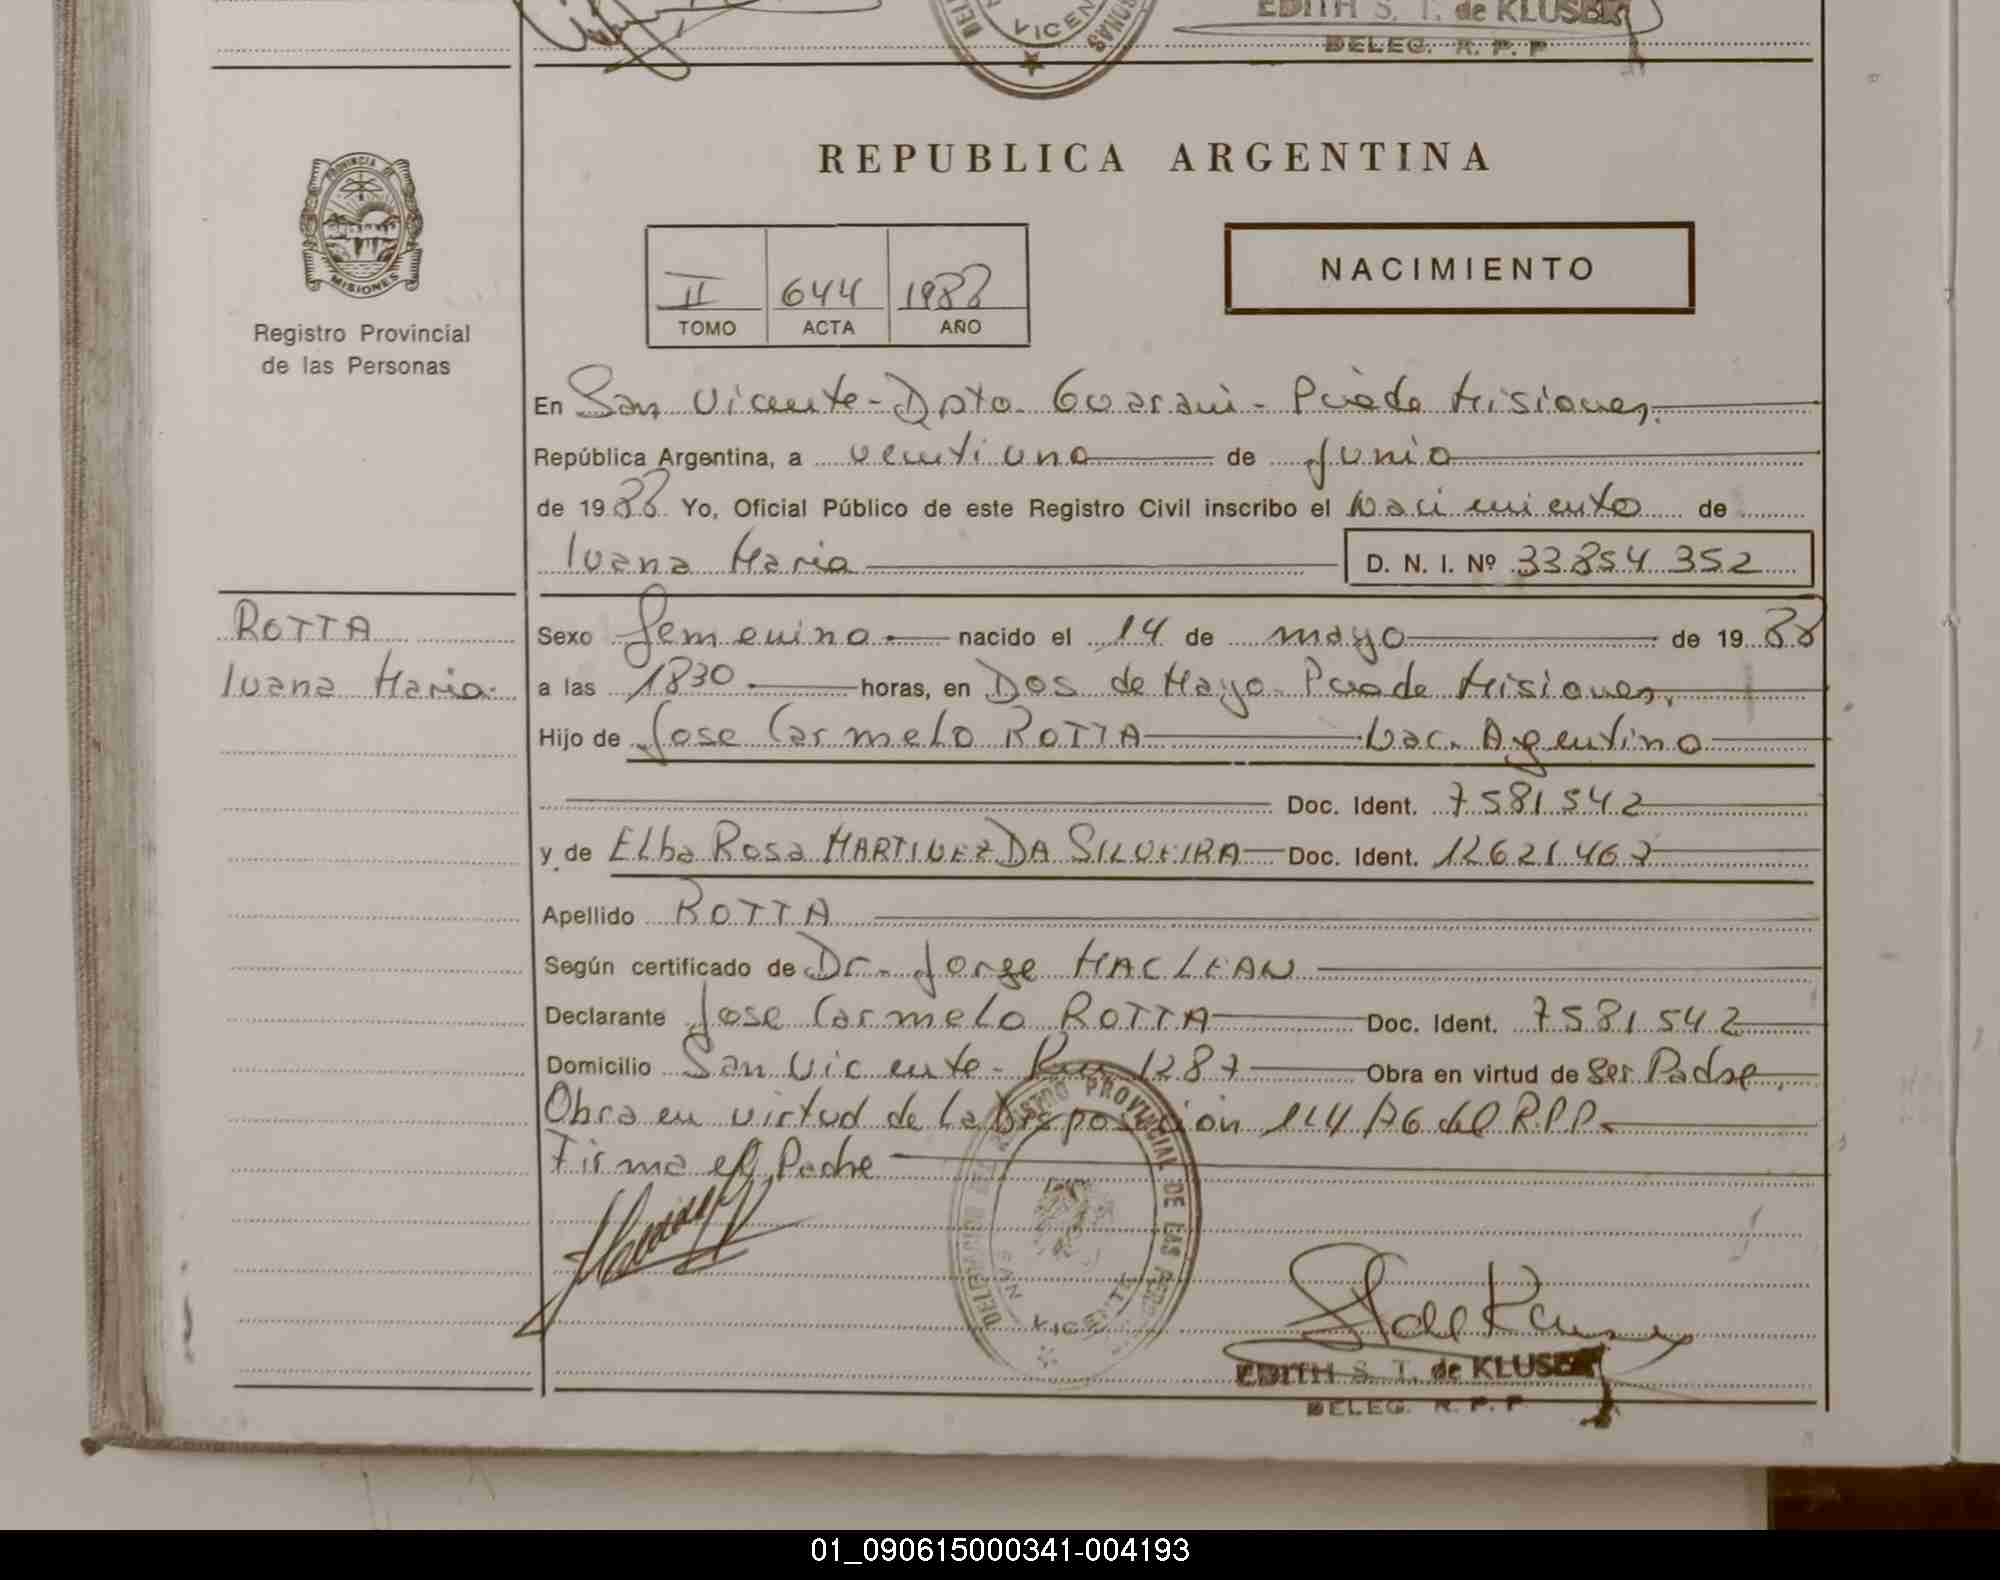 EDITH S. T. de KLUSER
DELEG. R. P. P
VICEN
PROVINCIA DE
MISIONES
Registro Provincial
de las Personas
REPUBLICA ARGENTINA
II 644 1988
TOMO ACTA AÑO
NACIMIENTO
En San Vicente - Dpto Guarani - Pciade Misiones.
República Argentina, a ventiuno de Junio
de 1988 Yo, Oficial Público de este Registro Civil inscribo el Nacimiento de
Ivana Maria D. N. I. Nº 33.854.352
ROTTA
Ivana Maria.
Sexo Femenino nacido el 14 de mayo de 1988
a las 1830 horas, en Dos de Mayo Pciade Misiones.
Hijo de Jose Carmelo ROTTA Nac. Argentino
Doc. Ident. 7581542
y de Elba Rosa MARTINEZ DA SILVEIRA Doc. Ident. 12621467
Apellido ROTTA
Según certificado de Dr. Jorge MACLEAN
Declarante Jose Carmelo ROTTA Doc. Ident. 7581542
Domicilio San Vicente - Km 1287 Obra en virtud de Ser Padre.
Obra en virtud de la Disposición 114/76 del R.P.P.
Firma el Padre
REGISTRO PROVINCIAL DE LAS PERS
SAN VICENTE
EDITH S. T. de KLUSER
DELEG. R. P. P
01_090615000341-004193